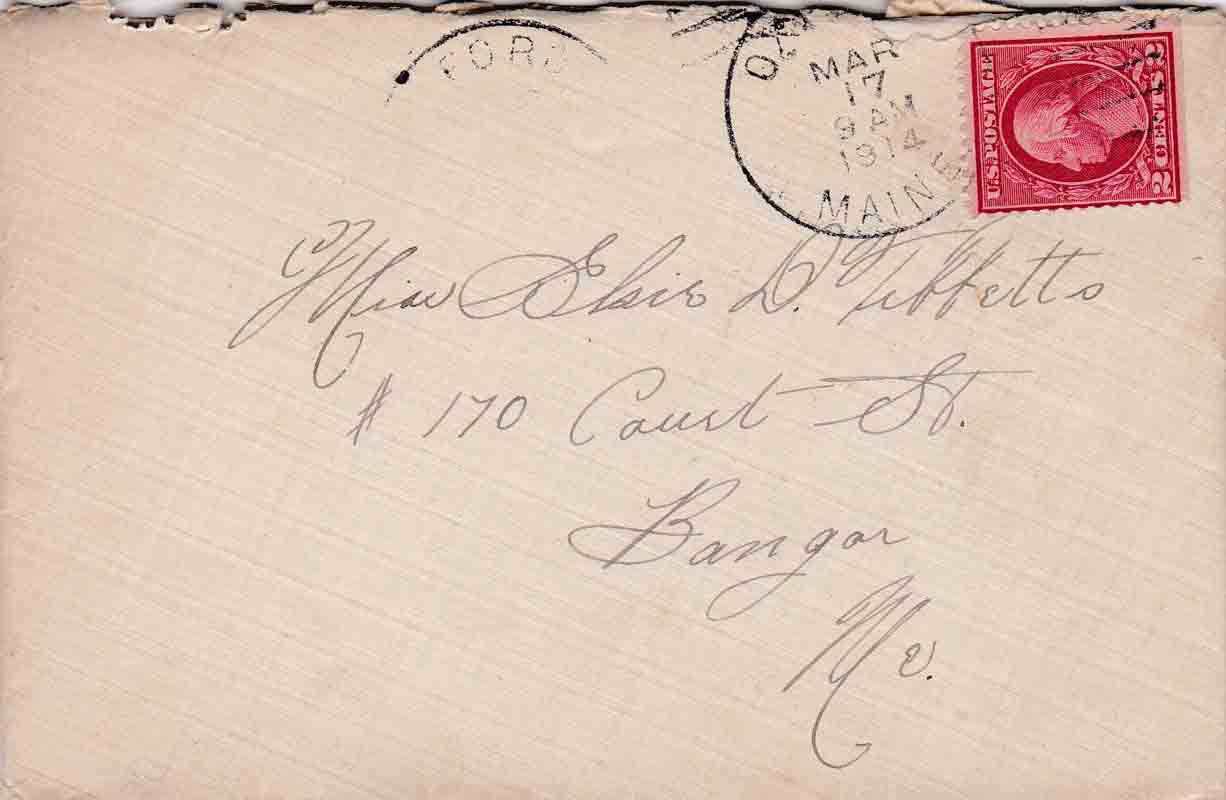 FORD
MAR
17
9 AM
1914
MAIN
U.S. POSTAGE
2 CENTS 2
Miss Elsie D. Tibbetts
# 170 Court St.
Bangor
Me.